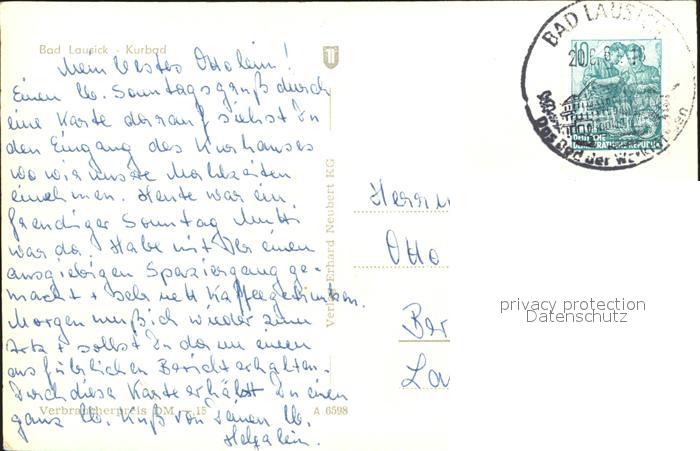 Bad Lausick - Kurbad
Mein bestes Ottolein!
Einen lb. Sonntagsgruß durch
eine Karte darauf siehst Du
den Eingang des Kurhauses
wo wir unsre Mahlzeiten
einehmen. Heute war ein
freudiger Sonntag Mutti
war da. Habe mit Ihr einen
ausgiebigen Spaziergang ge-
macht + sehr nett Kaffeegetrunken.
Morgen muß ich wieder zum
Arzt + sollst Du dann einen
ausführlichen Bericht erhalten.
Durch diese Karte erhälst Du einen
ganz lb. Kuß von Deinen lb.
Helgalein.
Verbraucherpreis DM -.15
A 6598
Verlag Erhard Neubert KG
BAD LAUSICK
10
DEUTSCHE
DEMOKRATISCHE REPUBLIK
Das Bad der Werktätigen
Herrn
Otto
Ber
La
privacy protection
Datenschutz